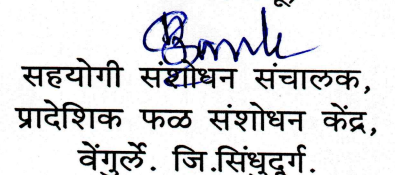 सहयोगी संशोधन संचालक,
प्रादेशिक फळ संशोधन केंद्र,
वेंगुर्ले. जि.सिंधुदूर्ग.